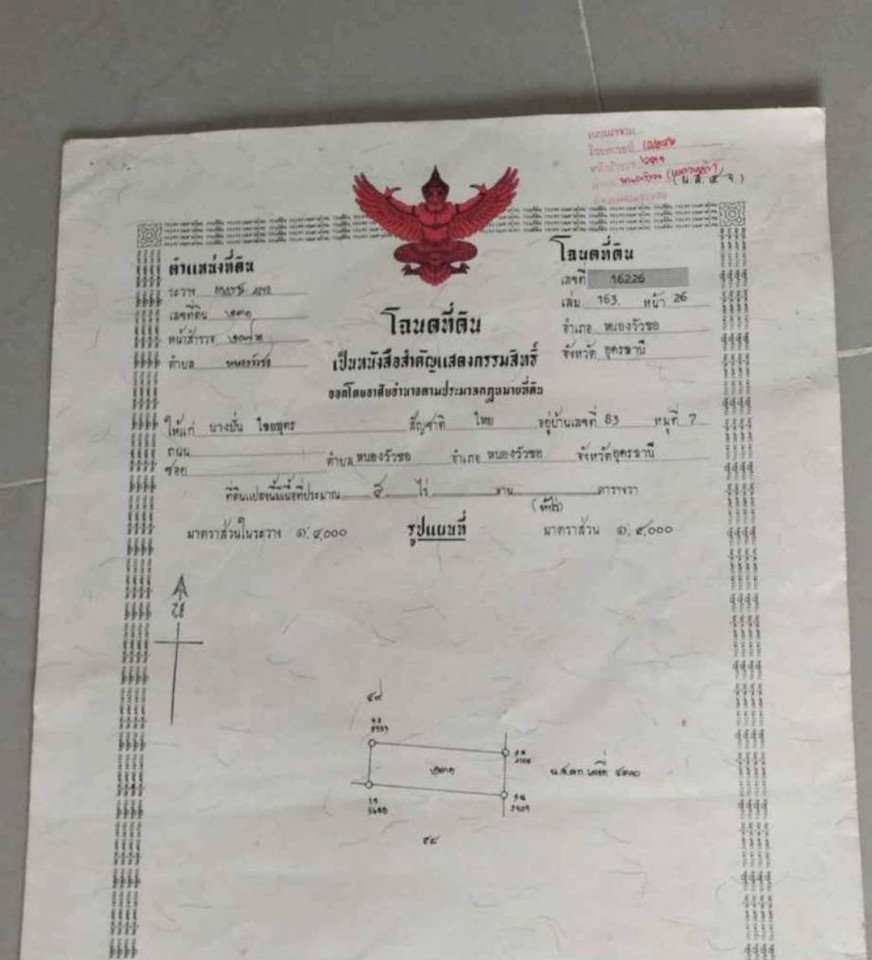 (น.ส. ๔ จ.)
ตำแหน่งที่ดิน
ระวาง
เลขที่ดิน ๒๓๑
หน้าสำรวจ
ตำบล หนองวัวซอ
โฉนดที่ดิน
เลขที่ 16226
เล่ม 163. หน้า 26
อำเภอ หนองวัวซอ
จังหวัด อุดรธานี
โฉนดที่ดิน
เป็นหนังสือสำคัญแสดงกรรมสิทธิ์
ออกโดยอาศัยอำนาจตามประมวลกฎหมายที่ดิน
ให้แก่ นางปั่น ไชยบุตร สัญชาติ ไทย อยู่บ้านเลขที่ 83 หมู่ที่ 7
ถนน
ซอย ตำบล หนองวัวซอ อำเภอ หนองวัวซอ จังหวัด อุดรธานี
ที่ดินแปลงนี้มีเนื้อที่ประมาณ ๕ ไร่ งาน ตารางวา
(ห้าไร่)
มาตราส่วนในระวาง ๑:๔,๐๐๐ รูปแผนที่ มาตราส่วน ๑:๔,๐๐๐
น
๔๙
๒๓๑
๕๘